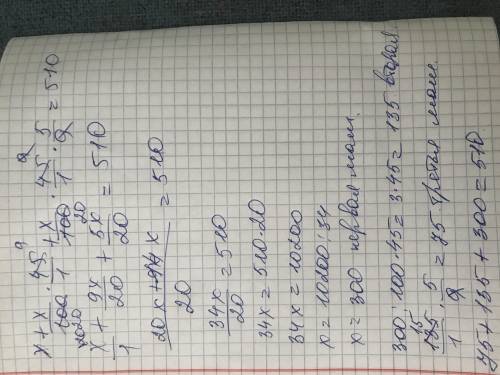 x + x/100 · 45/1 + x/100 · 45/1 · 5/9 = 510
x/1 + 9x/20 + 5x/20 = 510
20x + 14x / 20 = 510
34x/20 = 510
34x = 510 · 20
34x = 10200
x = 10200 : 34
x = 300 первая маш.
300 : 100 · 45 = 3 · 45 = 135 вторая
135/1 · 5/9 = 75 третья маш.
75 + 135 + 300 = 510